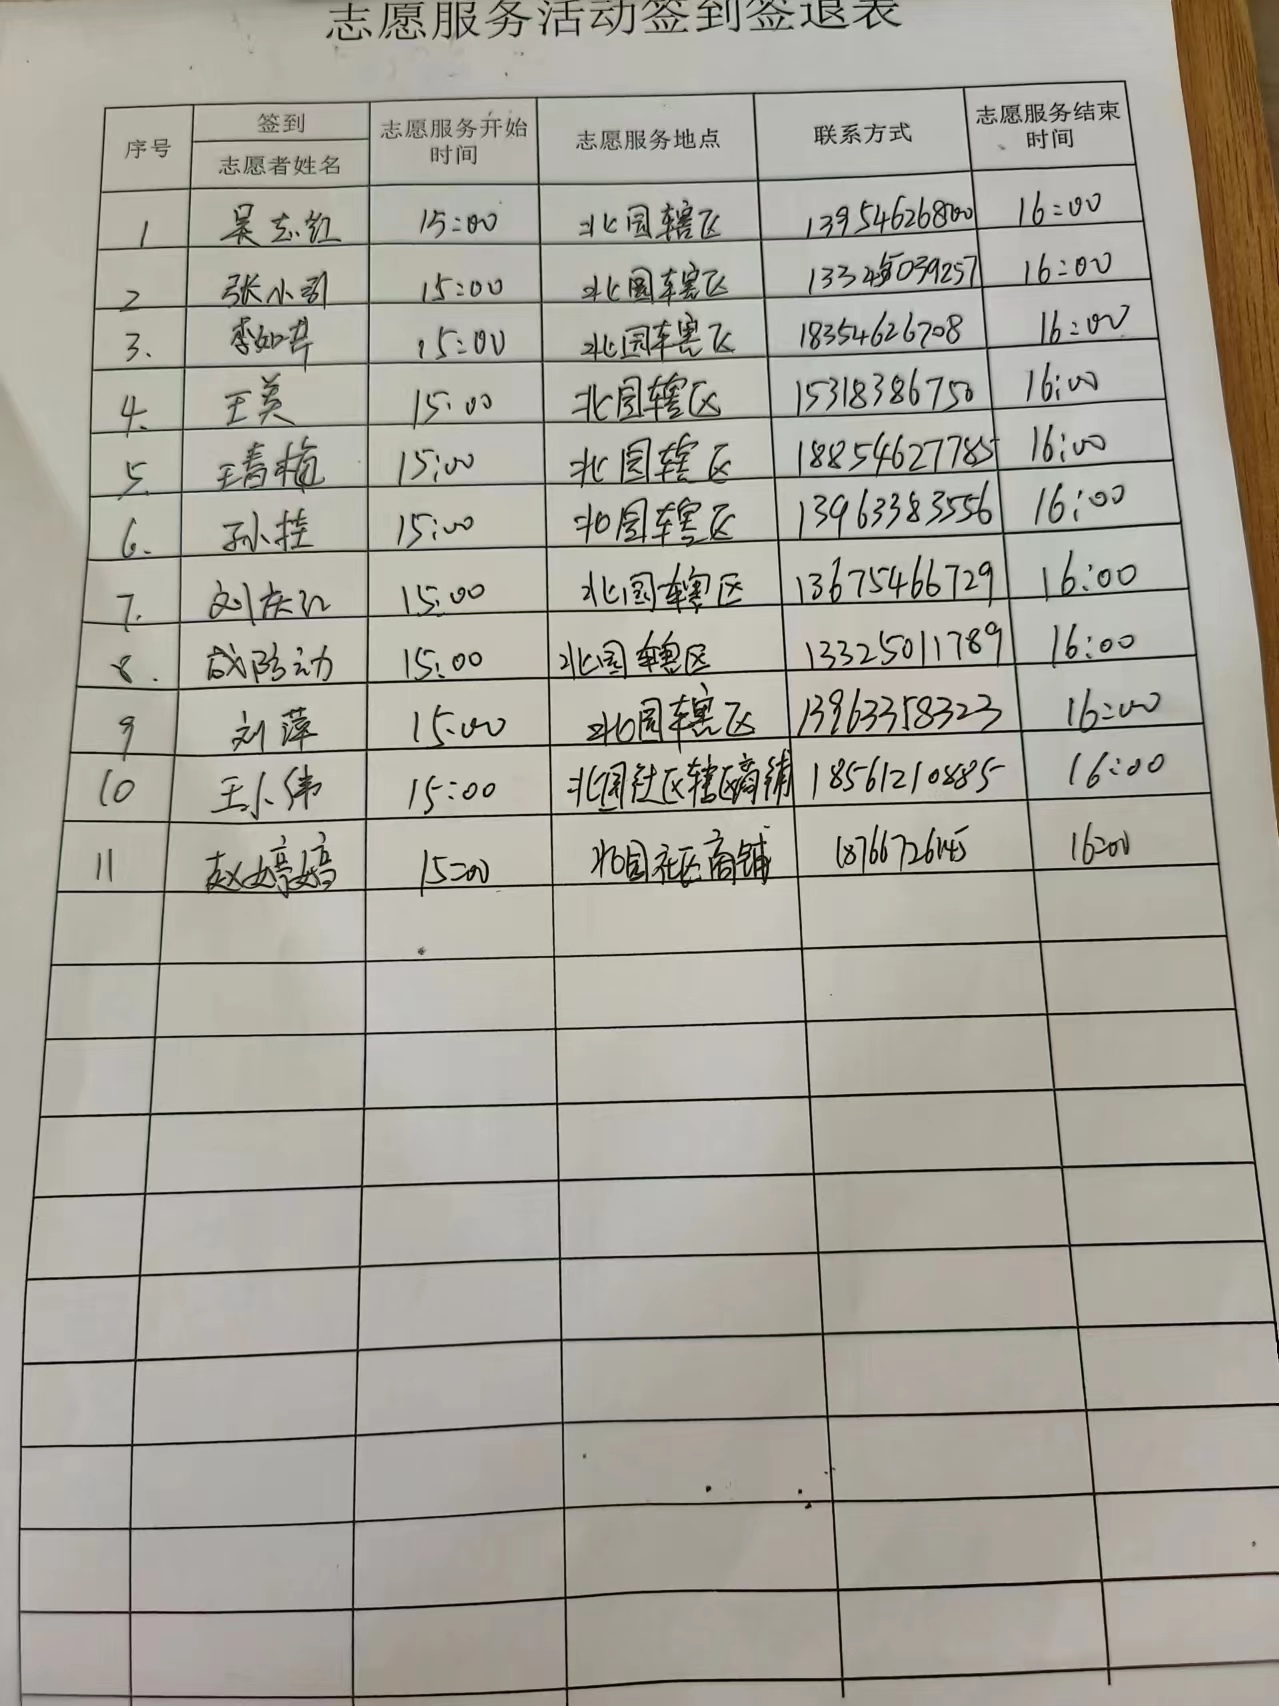 志愿服务活动签到签退表
序号 签到 志愿者姓名 志愿服务开始时间 志愿服务地点 联系方式 志愿服务结束时间
1 吴志红 15:00 北园辖区 13954626800 16:00
2 张小引 15:00 北园辖区 16:00
3. 15:00 北园辖区 18354626708 16:00
4. 王英 15:00 北园辖区 15318386750 16:00
5. 王春梅 15:00 北园辖区 18854627785 16:00
6. 孙桂 15:00 北园辖区 13963383556 16:00
7. 刘庆红 15:00 北园辖区 13675466729 16:00
8. 15:00 北园辖区 13325011789 16:00
9 刘萍 15:00 北园辖区 13963358323 16:00
10 王小伟 15:00 北园社区辖区商铺 18561210885 16:00
11 赵婷婷 15:00 北园社区商铺 16:00